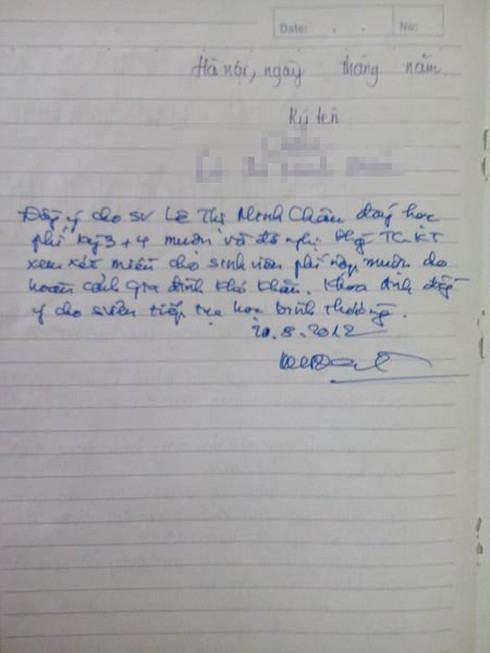 Date: . . No:
Hà nội, ngày tháng năm
Ký tên
Đồng ý cho SV Lê Thị Minh Châu đóng học
phí kỳ 3+4 muộn và đề nghị Phg TC-KT
xem xét miễn cho sinh viên phí nộp muộn do
hoàn cảnh gia đình khó khăn. Khoa đồng
ý cho sviên tiếp tục học bình thường.
20.8.2012